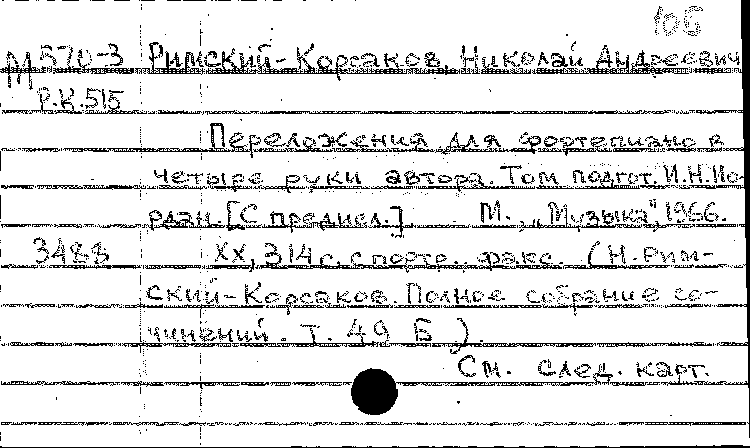 106
М 570-3 Римский-Корсаков, Николай Андреевич
Р.К.515
Переложения для фортепиано в
четыре руки автора. Том подгот. И.Н.Ио-
рдан. [С предисл.]. М., „Музыка", 1966.
3488 XX, 314 с. с портр., факс. (Н. Рим-
ский-Корсаков. Полное собрание со-
чинений. Т. 49 Б).
См. след. карт.